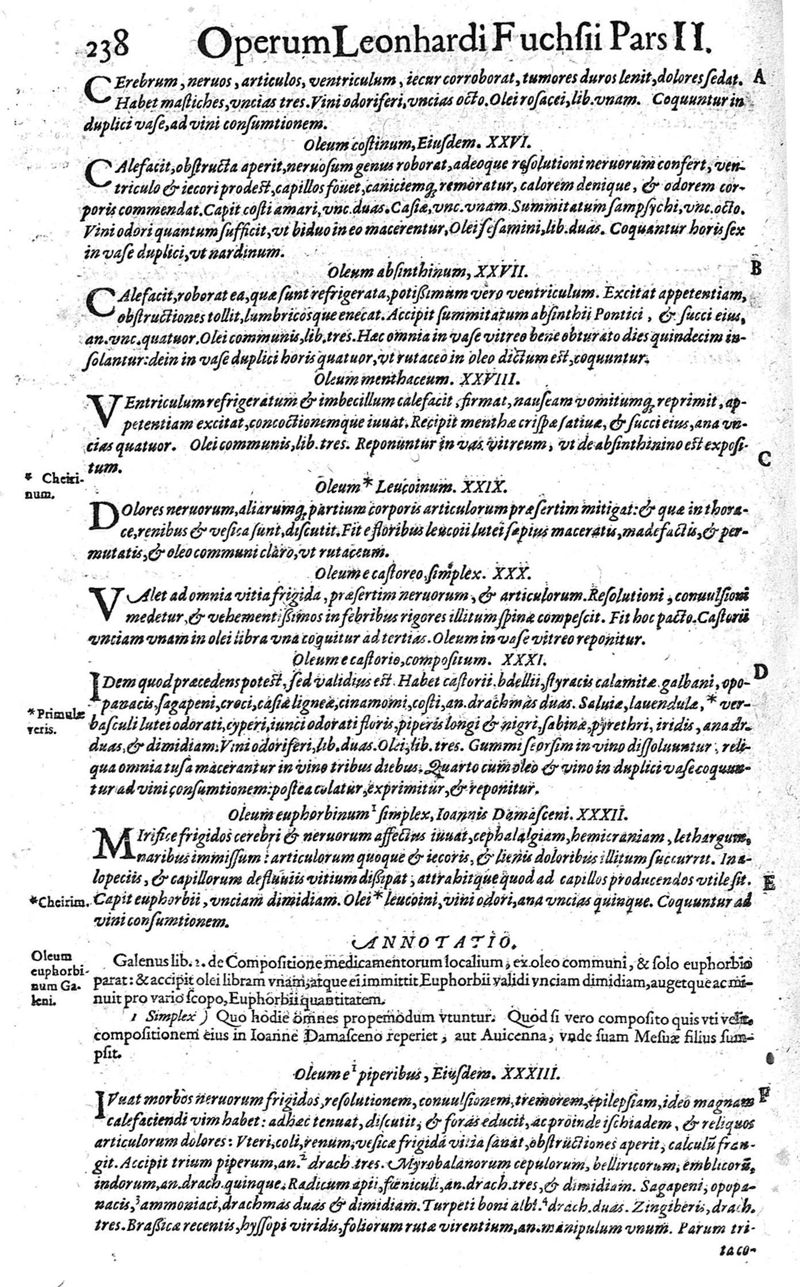 238 Operum Leonhardi Fuchsii Pars II.
CErebrum, neruos, articulos, ventriculum, iecur corroborat, tumores duros lenit, dolores sedat. A
Habet mastiches, vncias tres. Vini odoriferi, vncias octo. Olei rosacei, lib. vnam. Coquuntur in
duplici vase, ad vini consumtionem.
Oleum costinum, Eiusdem. XXVI.
CAlefacit, obstructa aperit, neruosum genus roborat, adeoque resolutioni neruorum confert, ven-
triculo & iecori prodest, capillos fouet, caniciemq; remoratur, calorem denique, & odorem cor-
poris commendat. Capit costi amari, vnc. duas. Casiæ, vnc. vnam. Summitatum sampsychi, vnc. octo.
Vini odori quantum sufficit, vt biduo in eo macerentur, Olei sesamini, lib. duas. Coquantur horis sex
in vase duplici, vt nardinum.
Oleum absinthinum, XXVII. B
CAlefacit, roborat ea, quæ sunt refrigerata, potissimum vero ventriculum. Excitat appetentiam,
obstructiones tollit, lumbricosque enecat. Accipit summitatum absinthii Pontici, & succi eius,
an. vnc. quatuor. Olei communis, lib. tres. Hæc omnia in vase vitreo bene obturato dies quindecim in-
solantur: dein in vase duplici horis quatuor, vt rutaceo in oleo dictum est, coquuntur.
Oleum menthaceum. XXVIII.
VEntriculum refrigeratum & imbecillum calefacit, firmat, nauseam vomitumq; reprimit, ap-
petentiam excitat, concoctionemque iuuat. Recipit menthæ crispæ satiuæ, & succi eius, ana vn-
cias quatuor. Olei communis, lib. tres. Reponuntur in vas vitreum, vt de absinthinino est exposi-
tum. C
* Cheiri-
num.
Oleum * Leucoinum. XXIX.
DOlores neruorum, aliarumq; partium corporis articulorum præsertim mitigat: & quæ in thora-
ce, renibus & vesica sunt, discutit. Fit e floribus leucoii lutei sæpius maceratis, madefactis, & per-
mutatis, & oleo communi claro, vt rutaceum.
Oleum e castoreo, simplex. XXX.
VAlet ad omnia vitia frigida, præsertim neruorum, & articulorum. Resolutioni, conuulsioni
medetur, & vehementissimos in febribus rigores illitum spinæ compescit. Fit hoc pacto. Castorii
vnciam vnam in olei libra vna coquitur ad tertias. Oleum in vase vitreo reponitur.
Oleum e castorio, compositum. XXXI.
IDem quod præcedens potest, sed validius est. Habet castorii, bdellii, styracis calamitæ, galbani, opo- D
panacis, sagapeni, croci, casiæ ligneæ, cinamomi, costi, an. drachmas duas. Saluiæ, lauendulæ, * ver-
* Primulæ
veris.
basculi lutei odorati, cyperi, iunci odorati floris, piperis longi & nigri, sabinæ, pyrethri, iridis, ana dr.
duas, & dimidiam. Vini odoriferi, lib. duas. Olei, lib. tres. Gummi seorsim in vino dissoluuntur, reli-
qua omnia tusa macerantur in vino tribus diebus. Quarto cum oleo & vino in duplici vase coquun-
tur ad vini consumtionem: postea colatur, exprimitur, & reponitur.
Oleum euphorbinum 1 simplex, Ioannis Damasceni. XXXII.
MIrifice frigidos cerebri & neruorum affectus iuuat, cephalalgiam, hemicraniam, lethargum,
naribus immissum: articulorum quoque & iecoris, & lienis doloribus illitum succurrit. In a-
lopeciis, & capillorum defluuiis vitium dissipat, attrahitque quod ad capillos producendos vtile sit. E
* Cheirim.
Capit euphorbii, vnciam dimidiam. Olei * leucoini, vini odori, ana vncias quinque. Coquuntur ad
vini consumtionem.
ANNOTATIO.
Oleum
euphorbi-
num Ga-
leni.
Galenus lib. 2. de Compositione medicamentorum localium, ex oleo communi, & solo euphorbio
parat: & accipit olei libram vnam, atque ei immittit Euphorbii validi vnciam dimidiam, augetque ac mi-
nuit pro vario scopo, Euphorbii quantitatem.
1 Simplex ) Quo hodie omnes propemodum vtuntur. Quod si vero composito quis vti velit,
compositionem eius in Ioanne Damasceno reperiet, aut Auicenna, vnde suam Mesuæ filius sum-
psit.
Oleum e 1 piperibus, Eiusdem. XXXIII.
IVuat morbos neruorum frigidos, resolutionem, conuulsionem, tremorem, epilepsiam, ideo magnam F
calefaciendi vim habet: adhæc tenuat, discutit, & foras educit, ac proinde ischiadem, & reliquos
articulorum dolores: Vteri, coli, renum, vesicæ frigida vitia sanat, obstructiones aperit, calculũ fran-
git. Accipit trium piperum, an. 2 drach. tres. Myrobalanorum cepulorum, belliricorum, emblicorũ,
indorum, an. drach. quinque. Radicum apii, fœniculi, an. drach. tres, & dimidiam. Sagapeni, opopa-
nacis, 3 ammoniaci, drachmas duas & dimidiam. Turpeti boni albi. 4 drach. duas. Zingiberis, drach.
tres. Brassicæ recentis, hyssopi viridis, foliorum rutæ virentium, an. manipulum vnum. Parum tri-
ta co-